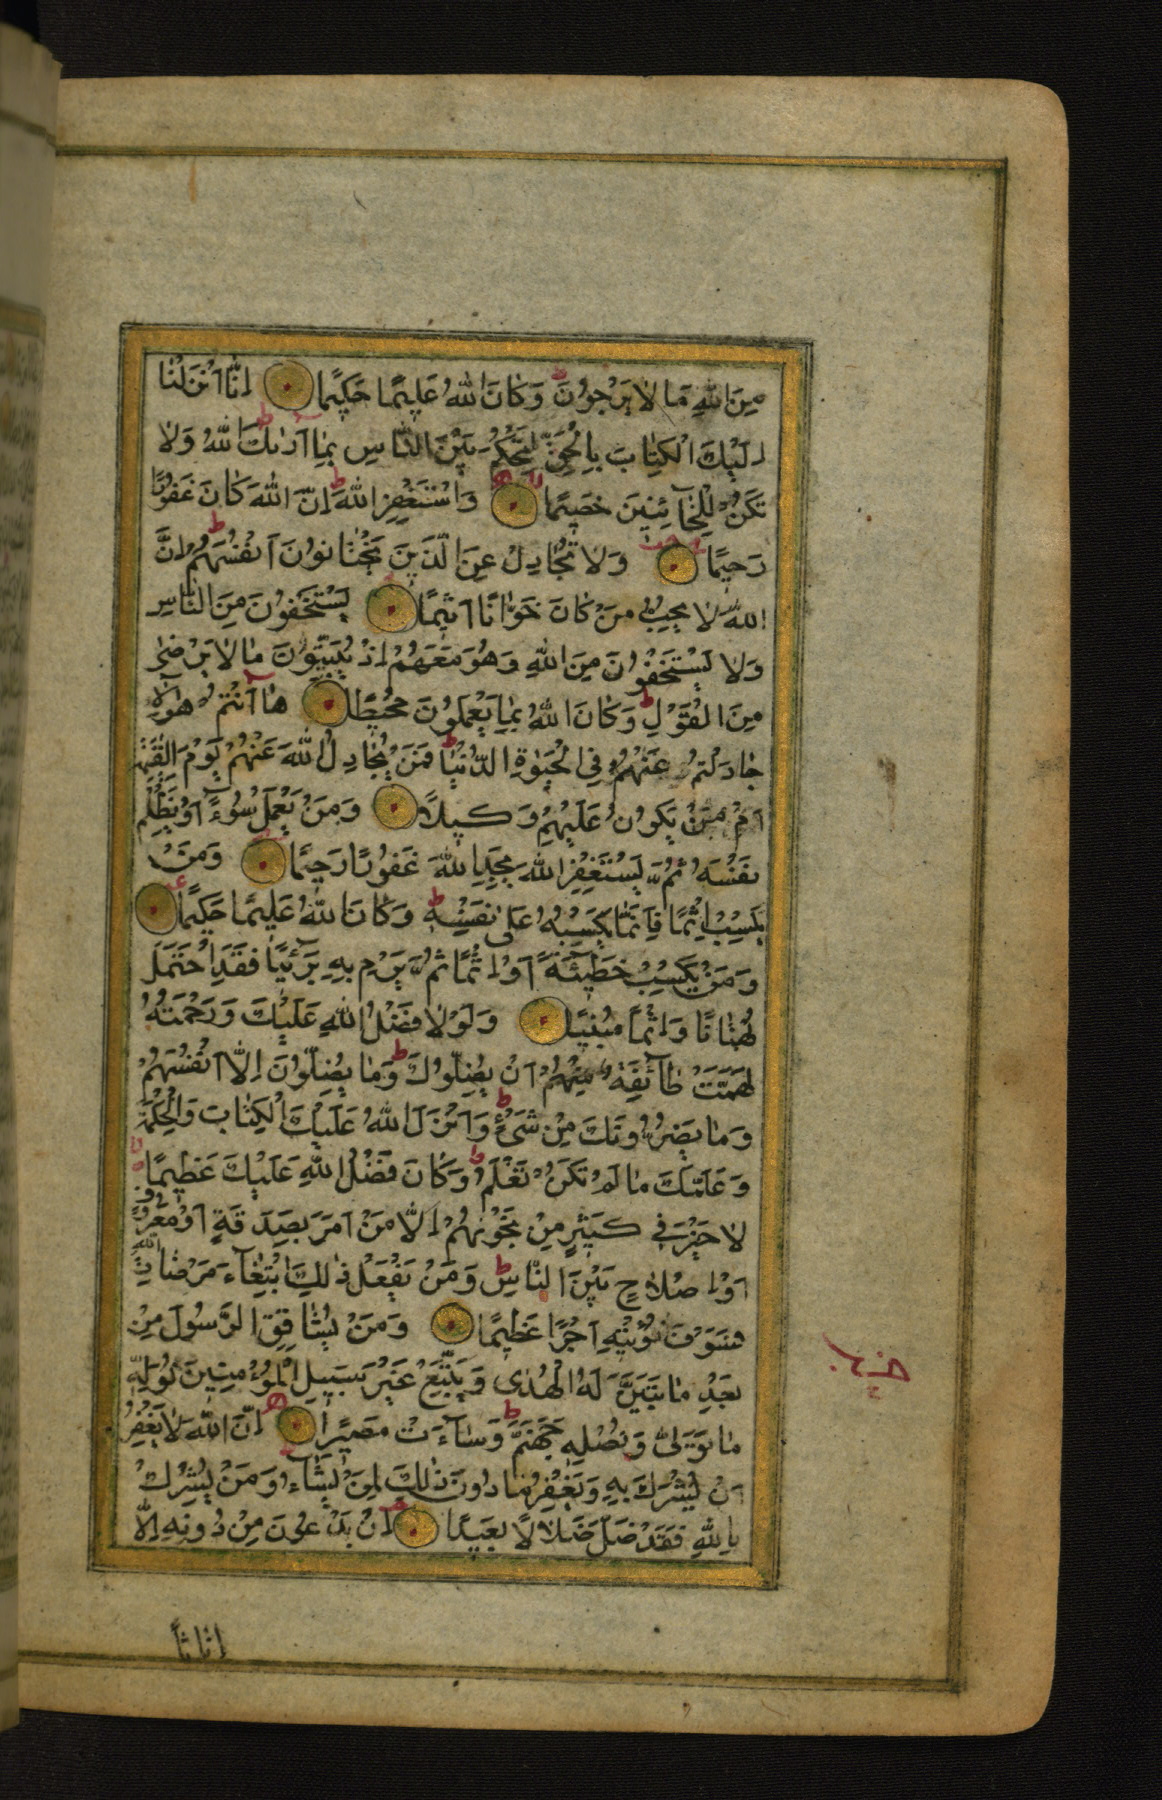 مِنَ اللّٰهِ مَا لَا يَرْجُونَ وَكَانَ اللّٰهُ عَلِيمًا حَكِيمًا اِنَّا اَنْزَلْنَا
اِلَيْكَ الْكِتَابَ بِالْحَقِّ لِتَحْكُمَ بَيْنَ النَّاسِ بِمَا اَرٰيكَ اللّٰهُ وَلَا
تَكُنْ لِلْخَآئِنِينَ خَصِيمًا وَاسْتَغْفِرِ اللّٰهَ اِنَّ اللّٰهَ كَانَ غَفُورًا
رَحِيمًا وَلَا تُجَادِلْ عَنِ الَّذِينَ يَخْتَانُونَ اَنْفُسَهُمْ اِنَّ
اللّٰهَ لَا يُحِبُّ مَنْ كَانَ خَوَّانًا اَثِيمًا يَسْتَخْفُونَ مِنَ النَّاسِ
وَلَا يَسْتَخْفُونَ مِنَ اللّٰهِ وَهُوَ مَعَهُمْ اِذْ يُبَيِّتُونَ مَا لَا يَرْضٰى
مِنَ الْقَوْلِ وَكَانَ اللّٰهُ بِمَا يَعْمَلُونَ مُحِيطًا هَا اَنْتُمْ هٰؤُلَآءِ
جَادَلْتُمْ عَنْهُمْ فِى الْحَيٰوةِ الدُّنْيَا فَمَنْ يُجَادِلُ اللّٰهَ عَنْهُمْ يَوْمَ الْقِيٰمَةِ
اَمْ مَنْ يَكُونُ عَلَيْهِمْ وَكِيلًا وَمَنْ يَعْمَلْ سُوءًا اَوْ يَظْلِمْ
نَفْسَهُ ثُمَّ يَسْتَغْفِرِ اللّٰهَ يَجِدِ اللّٰهَ غَفُورًا رَحِيمًا وَمَنْ
يَكْسِبْ اِثْمًا فَاِنَّمَا يَكْسِبُهُ عَلٰى نَفْسِهِ وَكَانَ اللّٰهُ عَلِيمًا حَكِيمًا
وَمَنْ يَكْسِبْ خَطِيئَةً اَوْ اِثْمًا ثُمَّ يَرْمِ بِهِ بَرِيئًا فَقَدِ احْتَمَلَ
بُهْتَانًا وَاِثْمًا مُبِينًا وَلَوْلَا فَضْلُ اللّٰهِ عَلَيْكَ وَرَحْمَتُهُ
لَهَمَّتْ طَآئِفَةٌ مِنْهُمْ اَنْ يُضِلُّوكَ وَمَا يُضِلُّونَ اِلَّا اَنْفُسَهُمْ
وَمَا يَضُرُّونَكَ مِنْ شَىْءٍ وَاَنْزَلَ اللّٰهُ عَلَيْكَ الْكِتَابَ وَالْحِكْمَةَ
وَعَلَّمَكَ مَا لَمْ تَكُنْ تَعْلَمُ وَكَانَ فَضْلُ اللّٰهِ عَلَيْكَ عَظِيمًا
لَا خَيْرَ فِى كَثِيرٍ مِنْ نَجْوٰيهُمْ اِلَّا مَنْ اَمَرَ بِصَدَقَةٍ اَوْ مَعْرُوفٍ
اَوْ اِصْلَاحٍ بَيْنَ النَّاسِ وَمَنْ يَفْعَلْ ذٰلِكَ ابْتِغَآءَ مَرْضَاتِ اللّٰهِ
فَسَوْفَ نُؤْتِيهِ اَجْرًا عَظِيمًا وَمَنْ يُشَاقِقِ الرَّسُولَ مِنْ
بَعْدِ مَا تَبَيَّنَ لَهُ الْهُدٰى وَيَتَّبِعْ غَيْرَ سَبِيلِ الْمُؤْمِنِينَ نُوَلِّهِ
مَا تَوَلّٰى وَنُصْلِهِ جَهَنَّمَ وَسَآءَتْ مَصِيرًا اِنَّ اللّٰهَ لَا يَغْفِرُ
اَنْ يُشْرَكَ بِهِ وَيَغْفِرُ مَا دُونَ ذٰلِكَ لِمَنْ يَشَآءُ وَمَنْ يُشْرِكْ
بِاللّٰهِ فَقَدْ ضَلَّ ضَلَالًا بَعِيدًا اِنْ يَدْعُونَ مِنْ دُونِهِ اِلَّا
اِنَاثًا